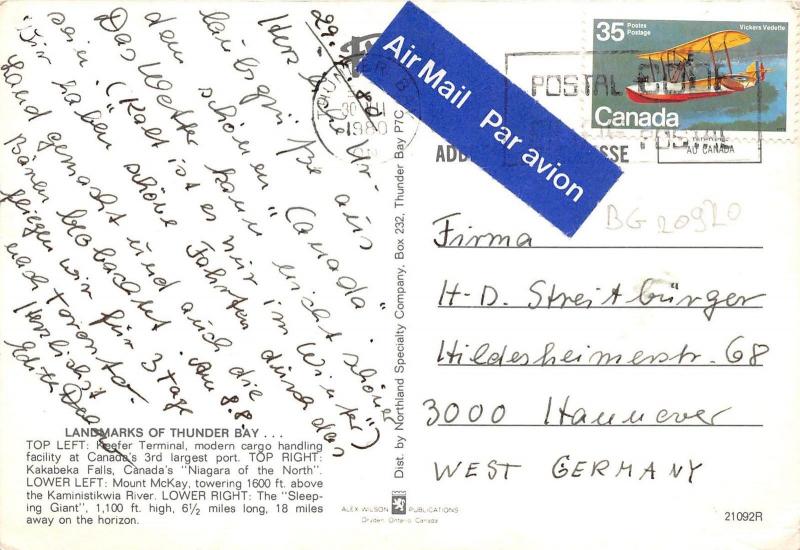 29. 7. 80
Herzliche Ur-
laubsgrüße aus
dem schönen "Canada".
Das Wetter kann nicht schöner
sein. (Kalt ist es nur im Winter)
Wir haben schöne Fahrten durch das
Land gemacht und auch die
Bären beobachtet. Am 8.8.
fliegen wir für 3 Tage
nach Toronto.
Herzlichst
Edith
LANDMARKS OF THUNDER BAY . . .
TOP LEFT: Keefer Terminal, modern cargo handling
facility at Canada's 3rd largest port. TOP RIGHT:
Kakabeka Falls, Canada's "Niagara of the North".
LOWER LEFT: Mount McKay, towering 1600 ft. above
the Kaministikwia River. LOWER RIGHT: The "Sleep-
ing Giant", 1,100 ft. high, 6½ miles long, 18 miles
away on the horizon.
Dist. by Northland Specialty Company, Box 232, Thunder Bay P7C
ALEX WILSON PUBLICATIONS
Dryden Ontario Canada
Air Mail Par avion
35 Postes
Postage
Vickers Vedette
Canada
POSTAL CODE
POSTAL
AU CANADA
30 VII
1980
BG 20920
Firma
H-D. Streitbürger
Hildesheimerstr. 68
3000 Hannover
WEST GERMANY
21092R